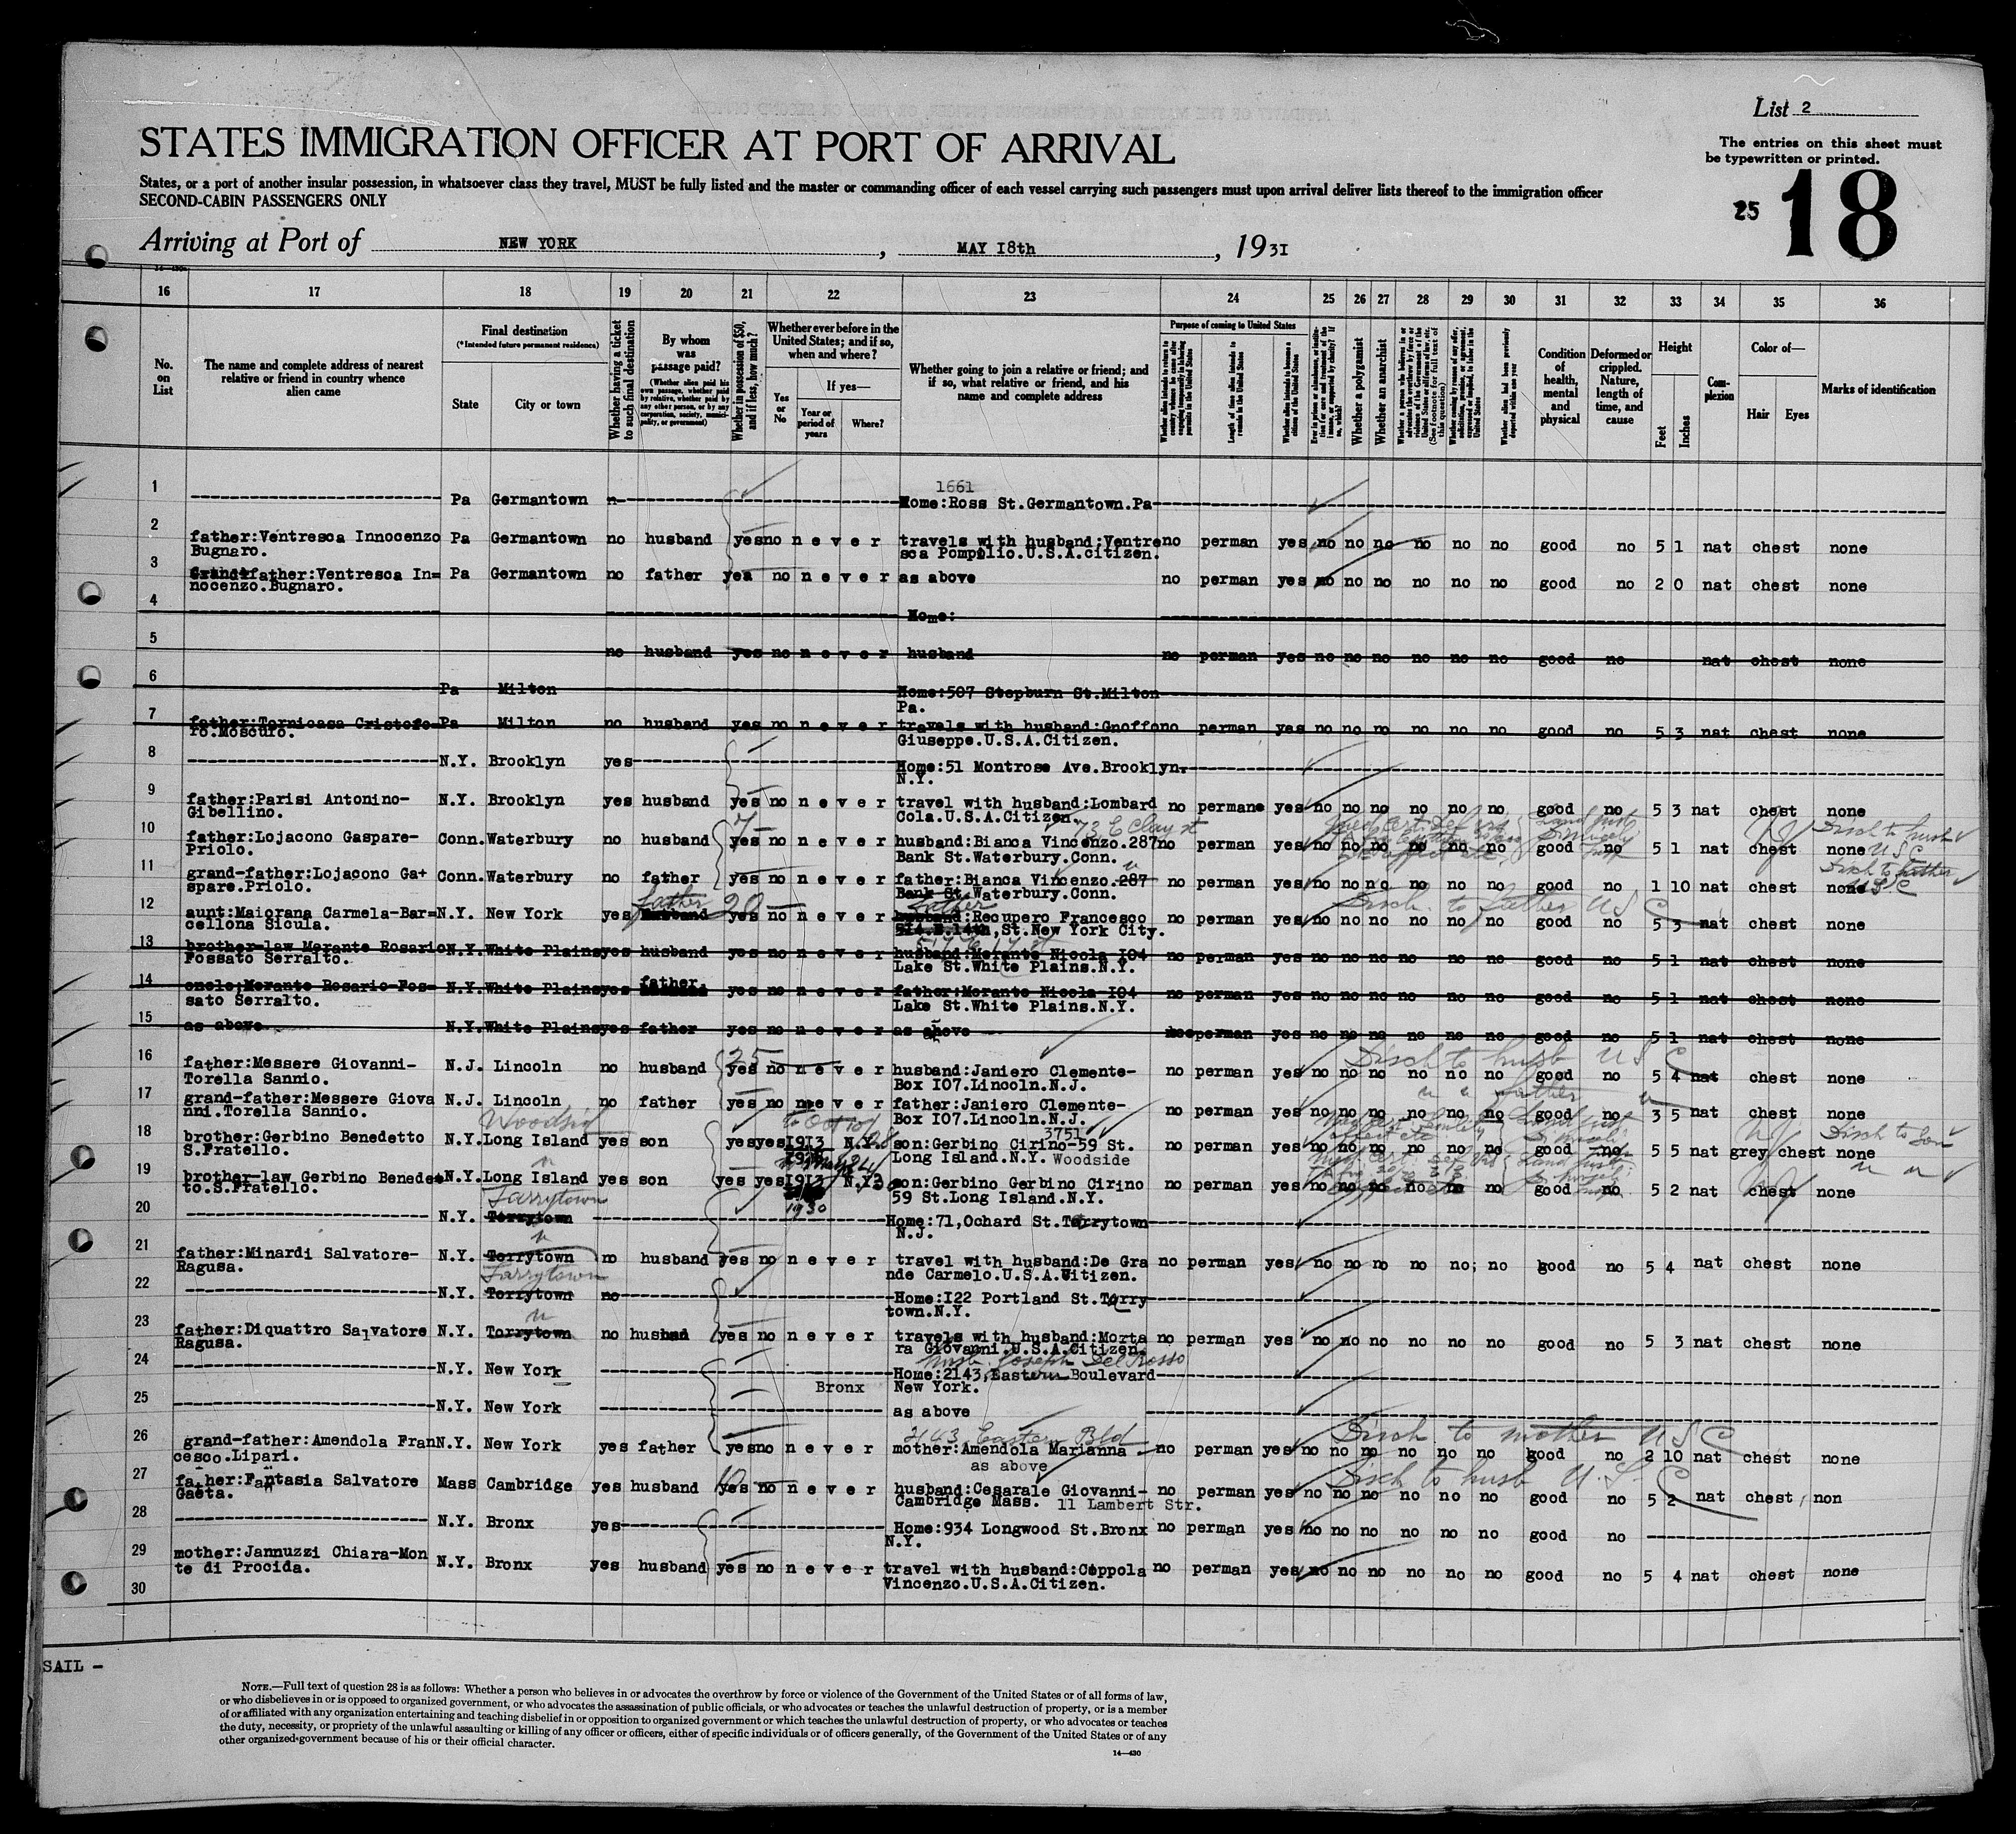 List 2
STATES IMMIGRATION OFFICER AT PORT OF ARRIVAL
The entries on this sheet must
be typewritten or printed.
States, or a port of another insular possession, in whatsoever class they travel, MUST be fully listed and the master or commanding officer of each vessel carrying such passengers must upon arrival deliver lists thereof to the immigration officer
SECOND-CABIN PASSENGERS ONLY
25 18
Arriving at Port of NEW YORK, MAY 18th, 1931
16 17 18 19 20 21 22 23 24 25 26 27 28 29 30 31 32 33 34 35 36
No. on List
The name and complete address of nearest relative or friend in country whence alien came
Final destination
(*Intended future permanent residence)
State
City or town
Whether having a ticket to such final destination
By whom was passage paid?
(Whether alien paid his own passage, whether paid by relative, whether paid by any other person, or by any corporation, society, municipality, or government)
Whether in possession of $50, and if less, how much?
Whether ever before in the United States; and if so, when and where?
Yes or No
If yes—
Year or period of years
Where?
Whether going to join a relative or friend; and if so, what relative or friend, and his name and complete address
Purpose of coming to United States
Length of time alien intends to remain in the United States
Whether alien intends to become a citizen of the United States
Whether a polygamist
Whether an anarchist
Condition of health, mental and physical
Deformed or crippled. Nature, length of time, and cause
Height
Feet
Inches
Complexion
Color of—
Hair Eyes
Marks of identification
1 Pa Germantown n 1661
Home:Ross St.Germantown.Pa
2 father:Ventresca Innocenzo Pa Germantown no husband yes no never travels with husband:Ventre no perman yes no no no no no no good no 5 1 nat chest none
Bugnaro. sca Pompilio.U.S.A.citizen.
3 Grand father:Ventresca In= Pa Germantown no father yes no never as above no perman yes no no no no no no good no 2 0 nat chest none
nocenzo.Bugnaro.
4 Home:
5 no husband yes no never husband no perman yes no no no no no no good no nat chest none
6 Pa Milton Home:507 Stepburn St.Milton
Pa.
7 father:Tornicasa Cristofo= Pa Milton no husband yes no never travels with husband:Gnoffo no perman yes no no no no no no good no 5 3 nat chest none
ro.Moscufo. Giuseppe.U.S.A.Citizen.
8 N.Y. Brooklyn yes Home:51 Montrose Ave.Brooklyn.
N.Y.
9 father:Parisi Antonino- N.Y. Brooklyn yes husband yes no never travel with husband:Lombard no permane yes no no no no no no good no 5 3 nat chest none
Gibellino. Cola.U.S.A.Citizen.
73 E Clay st
10 father:Lojacono Gaspare- Conn. Waterbury no husband yes no never husband:Bianca Vincenzo.287 no perman yes no no no no no no good no 5 1 nat chest none
Priolo. Bank St.Waterbury.Conn.
Disch to husb U S C
11 grand-father:Lojacono Ga+ Conn. Waterbury no father yes no never father:Bianca Vincenzo.287 no perman yes no no no no no no good no 1 10 nat chest none
spare.Priolo. Bank St.Waterbury.Conn.
Disch to father U S C
12 aunt:Maiorana Carmela-Bar= N.Y. New York yes husband father 20 yes no never husband father:Recupero Francesco no perman yes no no no no no no good no 5 3 nat chest none
cellona Sicula. 514.E.14th,St.New York City.
517 E 17 st
Disch. to father U S C
13 brother-law Morante Rosario N.Y. White Plains yes husband yes no never husband:Morante Nicola I04 no perman yes no no no no no no good no 5 1 nat chest none
Fossato Serralto. Lake St.White Plains.N.Y.
14 uncle:Morante Rosario Fos- N.Y. White Plains yes father yes no never father:Morante Nicola I04 no perman yes no no no no no no good no 5 1 nat chest none
sato Serralto. Lake St.White Plains.N.Y.
15 as above N.Y. White Plains yes father yes no never as above perman yes no no no no no no good no 5 1 nat chest none
16 father:Messere Giovanni- N.J. Lincoln no husband 25 yes no never husband:Janiero Clemente- no perman yes no no no no no no good no 5 4 nat chest none
Torella Sannio. Box I07.Lincoln.N.J.
Disch to husb U S C
17 grand-father:Messere Giova N.J. Lincoln no father yes no never father:Janiero Clemente- no perman yes no no no no no no good no 3 5 nat chest none
nni.Torella Sannio. Box I07.Lincoln.N.J.
" " father "
Woodside
18 brother:Gerbino Benedetto N.Y. Long Island yes son yes yes 1913 N.Y. son:Gerbino Cirino-59 St. 3751 no perman yes no no no no no no good no 5 5 nat grey chest none
S.Fratello. Long Island.N.Y. Woodside
Disch to Son
19 brother-law Gerbino Benedet N.Y. Long Island yes son yes yes 1913 N.Y. son:Gerbino Gerbino Cirino no perman yes no no no no no no good no 5 2 nat chest none
to.S.Fratello. 1930 59 St.Long Island.N.Y.
Tarrytown
20 N.Y. Torrytown Home:71,Ochard St.Tarrytown
N.J.
21 father:Minardi Salvatore- N.Y. Torrytown no husband yes no never travel with husband:De Gra no perman yes no no no no no; no good no 5 4 nat chest none
Ragusa. nde Carmelo.U.S.A.Citizen.
Tarrytown
22 N.Y. Torrytown no Home:I22 Portland St.Tarry
town.N.Y.
23 father:Diquattro Salvatore N.Y. Torrytown no husband yes no never travels with husband:Morta no perman yes no no no no no no good no 5 3 nat chest none
Ragusa. ra Giovanni.U.S.A.Citizen.
husb. Joseph Del Rosso
24 N.Y. New York Home:2143,Eastern Boulevard
Bronx New York.
25 N.Y. New York as above
2143 Eastern Bld
26 grand-father:Amendola Fran N.Y. New York yes father yes no never mother:Amendola Marianna no perman yes no no no no no no good no 2 10 nat chest none
cesco.Lipari. as above
Disch to mother U S C
27 father:Fantasia Salvatore Mass Cambridge yes husband yes no never husband:Cesarale Giovanni- no perman yes no no no no no no good no 5 2 nat chest non
Gaeta. Cambridge Mass. 11 Lambert Str.
Disch to husb U.S. C
28 N.Y. Bronx yes Home:934 Longwood St.Bronx no perman yes no no no no no no good no
N.Y.
29 mother:Jannuzzi Chiara-Mon N.Y. Bronx yes husband yes no never travel with husband:Coppola no perman yes no no no no no no good no 5 4 nat chest none
te di Procida. Vincenzo.U.S.A.Citizen.
30
SAIL -
NOTE.—Full text of question 28 is as follows: Whether a person who believes in or advocates the overthrow by force or violence of the Government of the United States or of all forms of law,
or who disbelieves in or is opposed to organized government, or who advocates the assassination of public officials, or who advocates or teaches the unlawful destruction of property, or is a member
of or affiliated with any organization entertaining and teaching disbelief in or opposition to organized government or which teaches the unlawful destruction of property, or who advocates or teaches
the duty, necessity, or propriety of the unlawful assaulting or killing of any officer or officers, either of specific individuals or of officers generally, of the Government of the United States or of any
other organized government because of his or their official character.
14—430